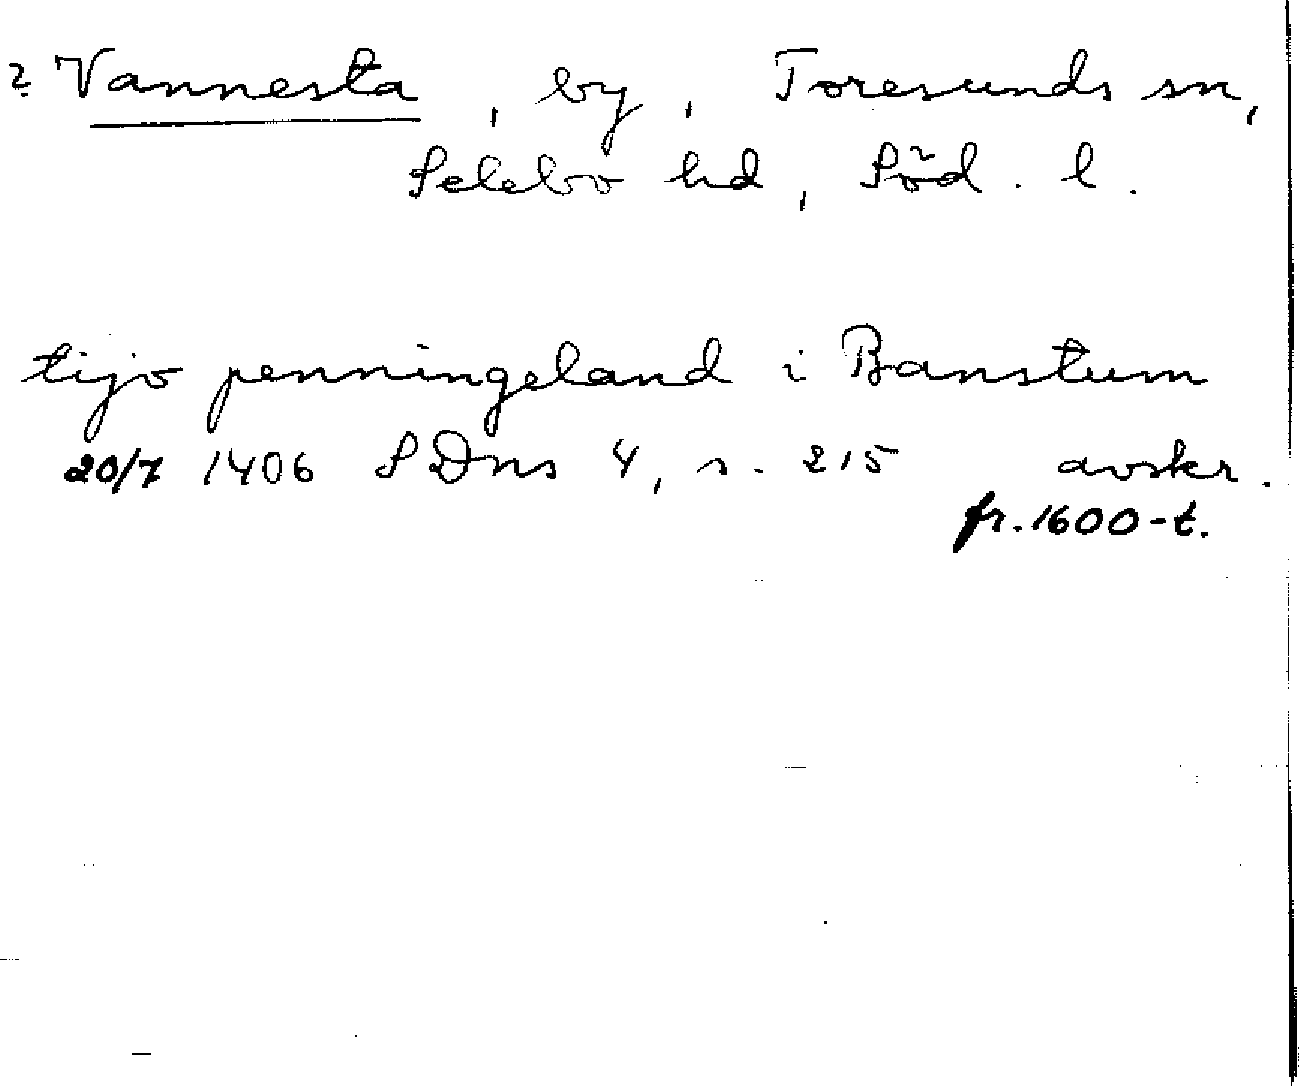 ? Vannesta, by, Toresunds sn,
Selebo hd, Söd. l.
tijo penningeland i Banstum
20/7 1406 SDns 4, s. 215 avskr.
fr. 1600-t.